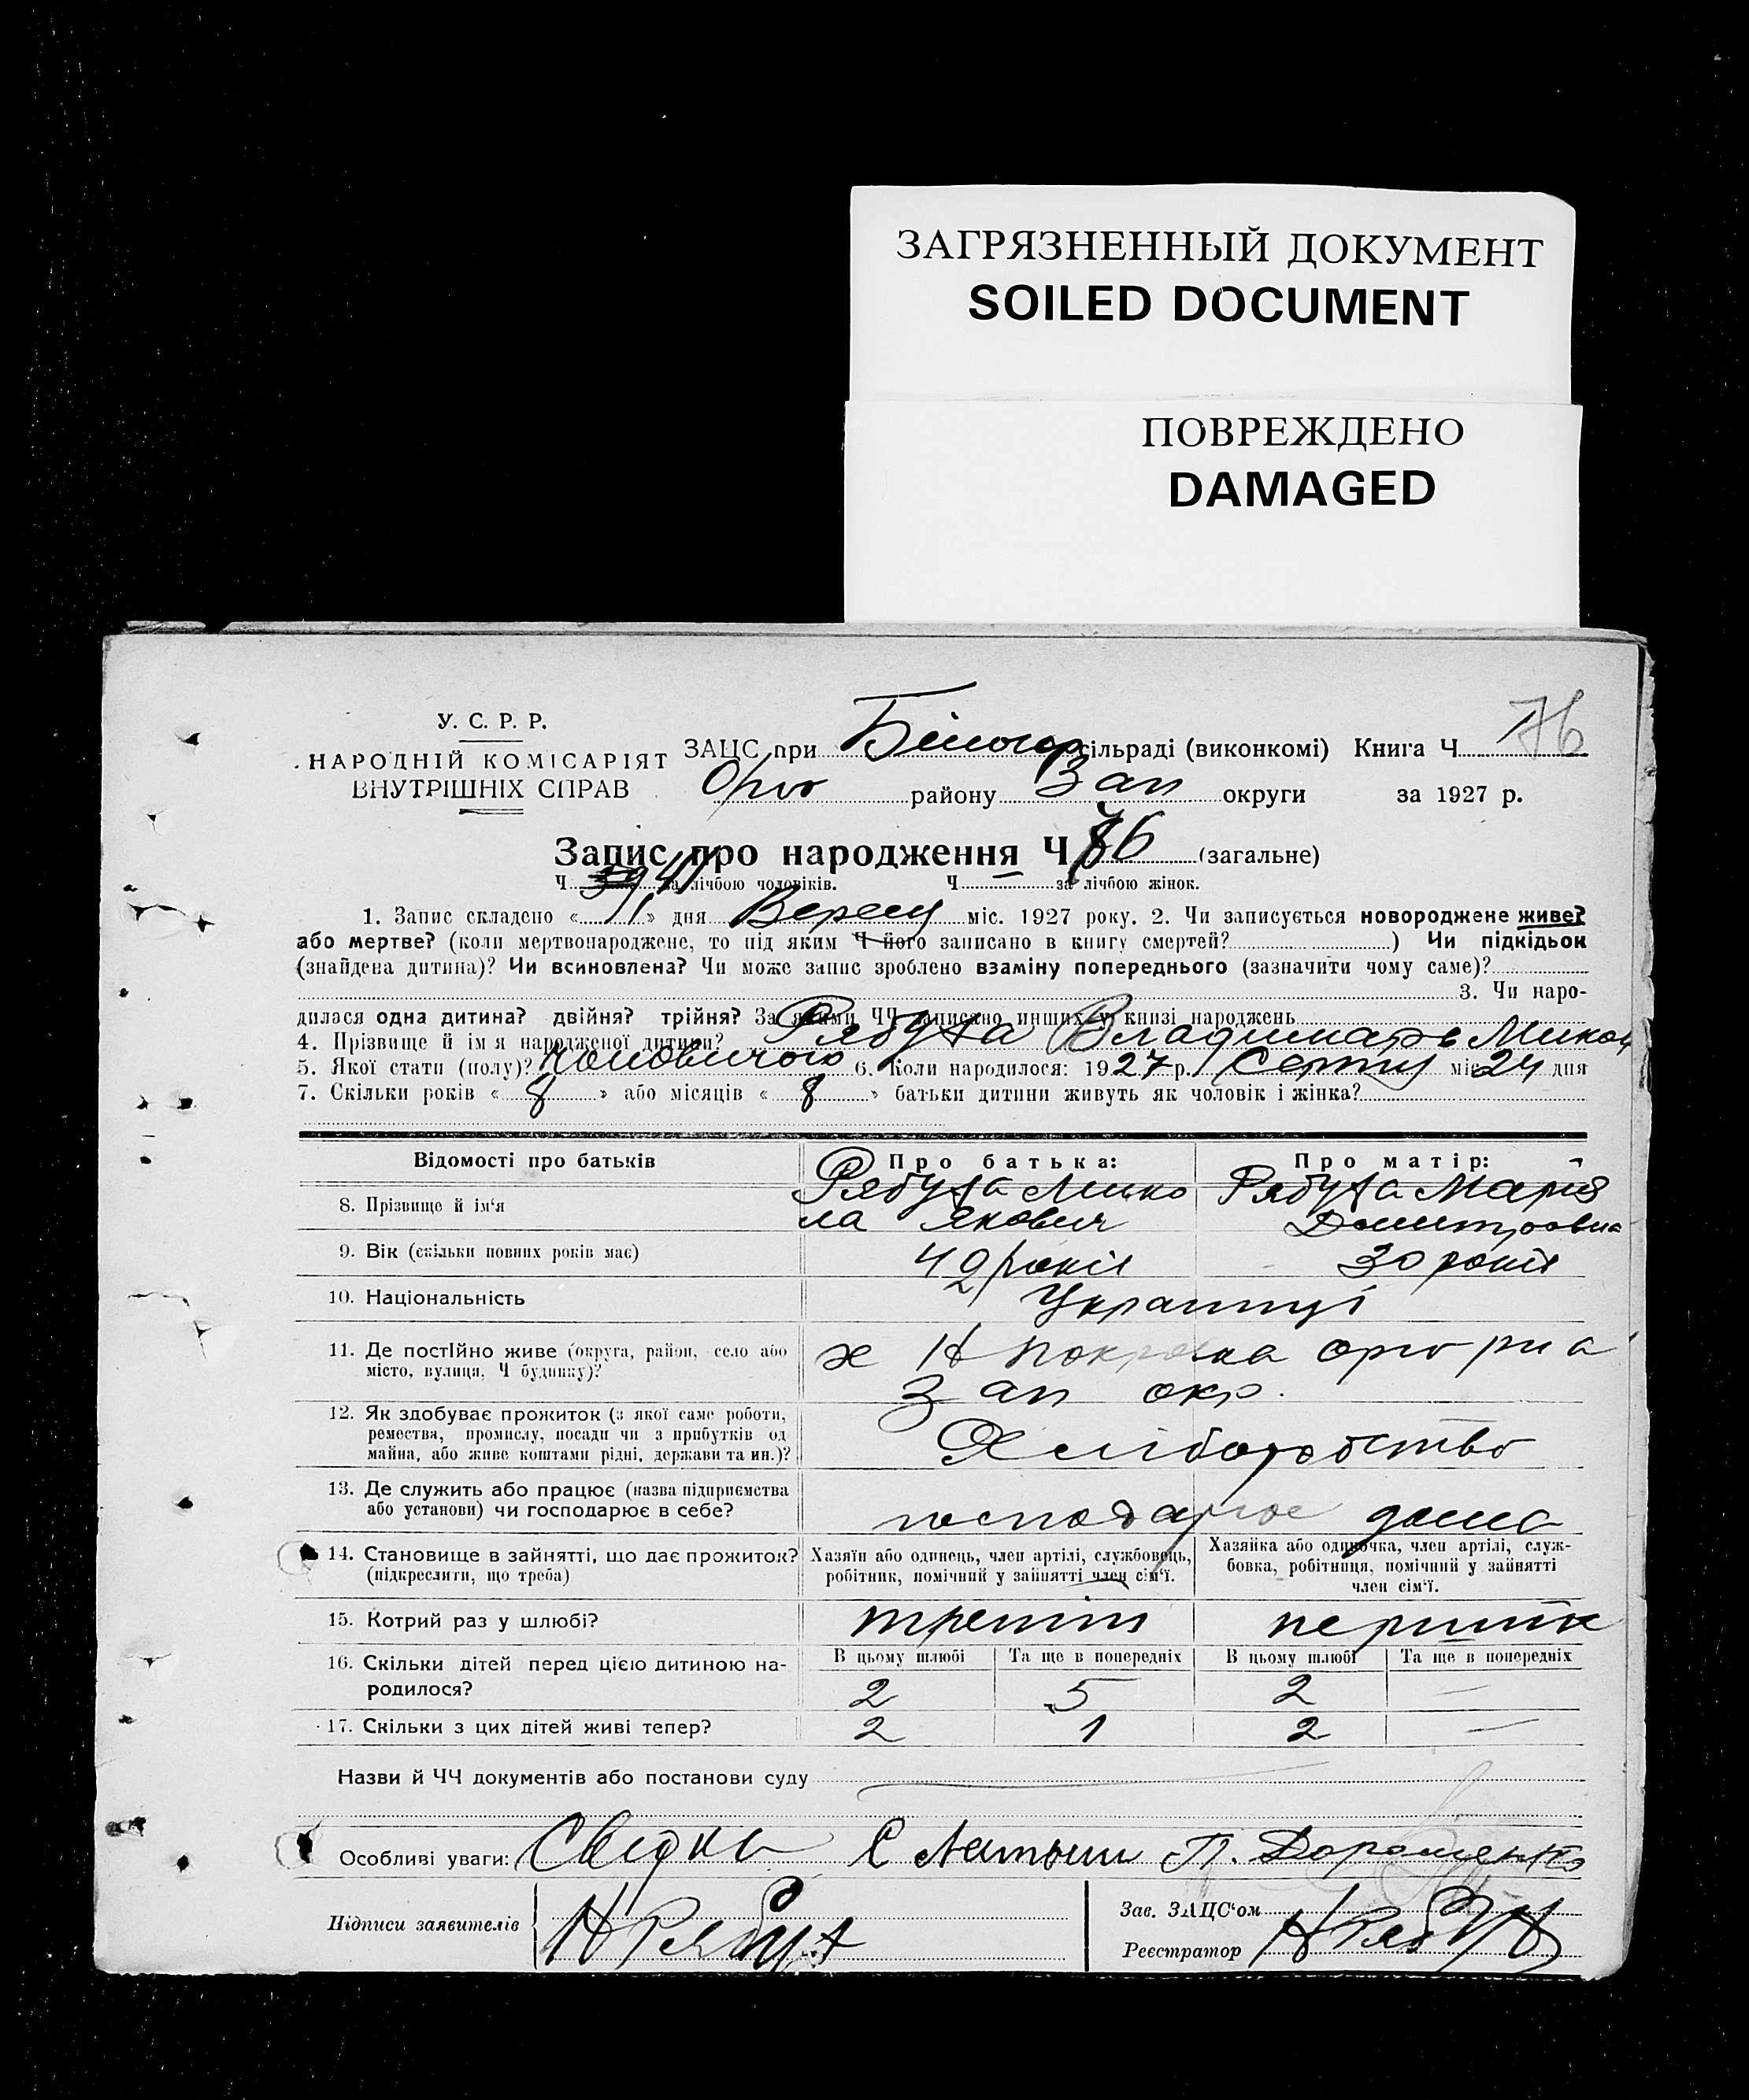 ЗАГРЯЗНЕННЫЙ ДОКУМЕНТ
SOILED DOCUMENT
ПОВРЕЖДЕНО
DAMAGED
У. С. Р. Р.
НАРОДНІЙ КОМІСАРІЯТ
ВНУТРІШНІХ СПРАВ
ЗАЦС при Білогор сільраді (виконкомі) Книга Ч 76
району Зап округи за 1927 р.
Запис про народження Ч 76 (загальне)
Ч 39 за лічбою чоловіків. Ч за лічбою жінок.
1. Запис складено « » дня міс. 1927 року. 2. Чи записується новороджене живе?
або мертве? (коли мертвонароджене, то під яким Ч його записано в книгу смертей? ) Чи підкідьок
(знайдена дитина)? Чи всиновлена? Чи може запис зроблено взаміну попереднього (зазначити чому саме)?
3. Чи наро-
дилася одна дитина? двійня? трійня? За якими ЧЧ записано инших у книзі народжень
4. Прізвище й ім я народженої дитини? Рябуха Владимирь Микол
5. Якої стати (полу)? 6. Коли народилося: 1927 р. міс 24 дня
7. Скільки років « 8 » або місяців « 8 » батьки дитини живуть як чоловік і жінка?
Відомості про батьків Про батька: Про матір:
8. Прізвище й ім‘я Рябуха Мико Рябуха Марія
ла Якович Дмитровна
9. Вік (скільки повних років має) 42 років 30 років
10. Національність Українці
11. Де постійно живе (округа, район, село або
місто, вулиця, Ч будинку)?
х Н Покровка орго рна
Зап окр.
12. Як здобуває прожиток (з якої саме роботи,
ремества, промислу, посади чи з прибутків од
майна, або живе коштами рідні, держави та ин.)?
Хліборобство
13. Де служить або працює (назва підприємства
або установи) чи господарює в себе?
господарює дома
14. Становище в зайнятті, що дає прожиток?
(підкреслити, що треба)
Хазяїн або одинець, член артілі, службовець,
робітник, помічний у зайнятті член сім‘ї.
Хазяйка або одиночка, член артілі, служ-
бовка, робітниця, помічний у зайнятті
член сім‘ї.
15. Котрий раз у шлюбі? третій
16. Скільки дітей перед цією дитиною на-
родилося?
В цьому шлюбі Та ще в попередніх В цьому шлюбі Та ще в попередніх
2 5 2 —
17. Скільки з цих дітей живі тепер? 2 1 2 —
Назви й ЧЧ документів або постанови суду
Особливі уваги: Свідки П. Дорошенко
Підписи заявителів Н Рябуха
Зав. ЗАЦС‘ом
Реєстратор Н Рябуха